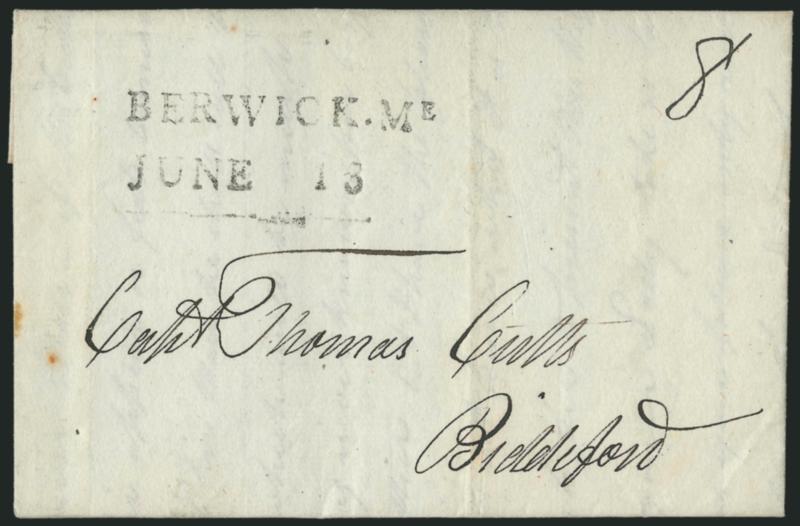 BERWICK.Mᴱ
JUNE 18
8
Capt Thomas Cutts
Biddeford